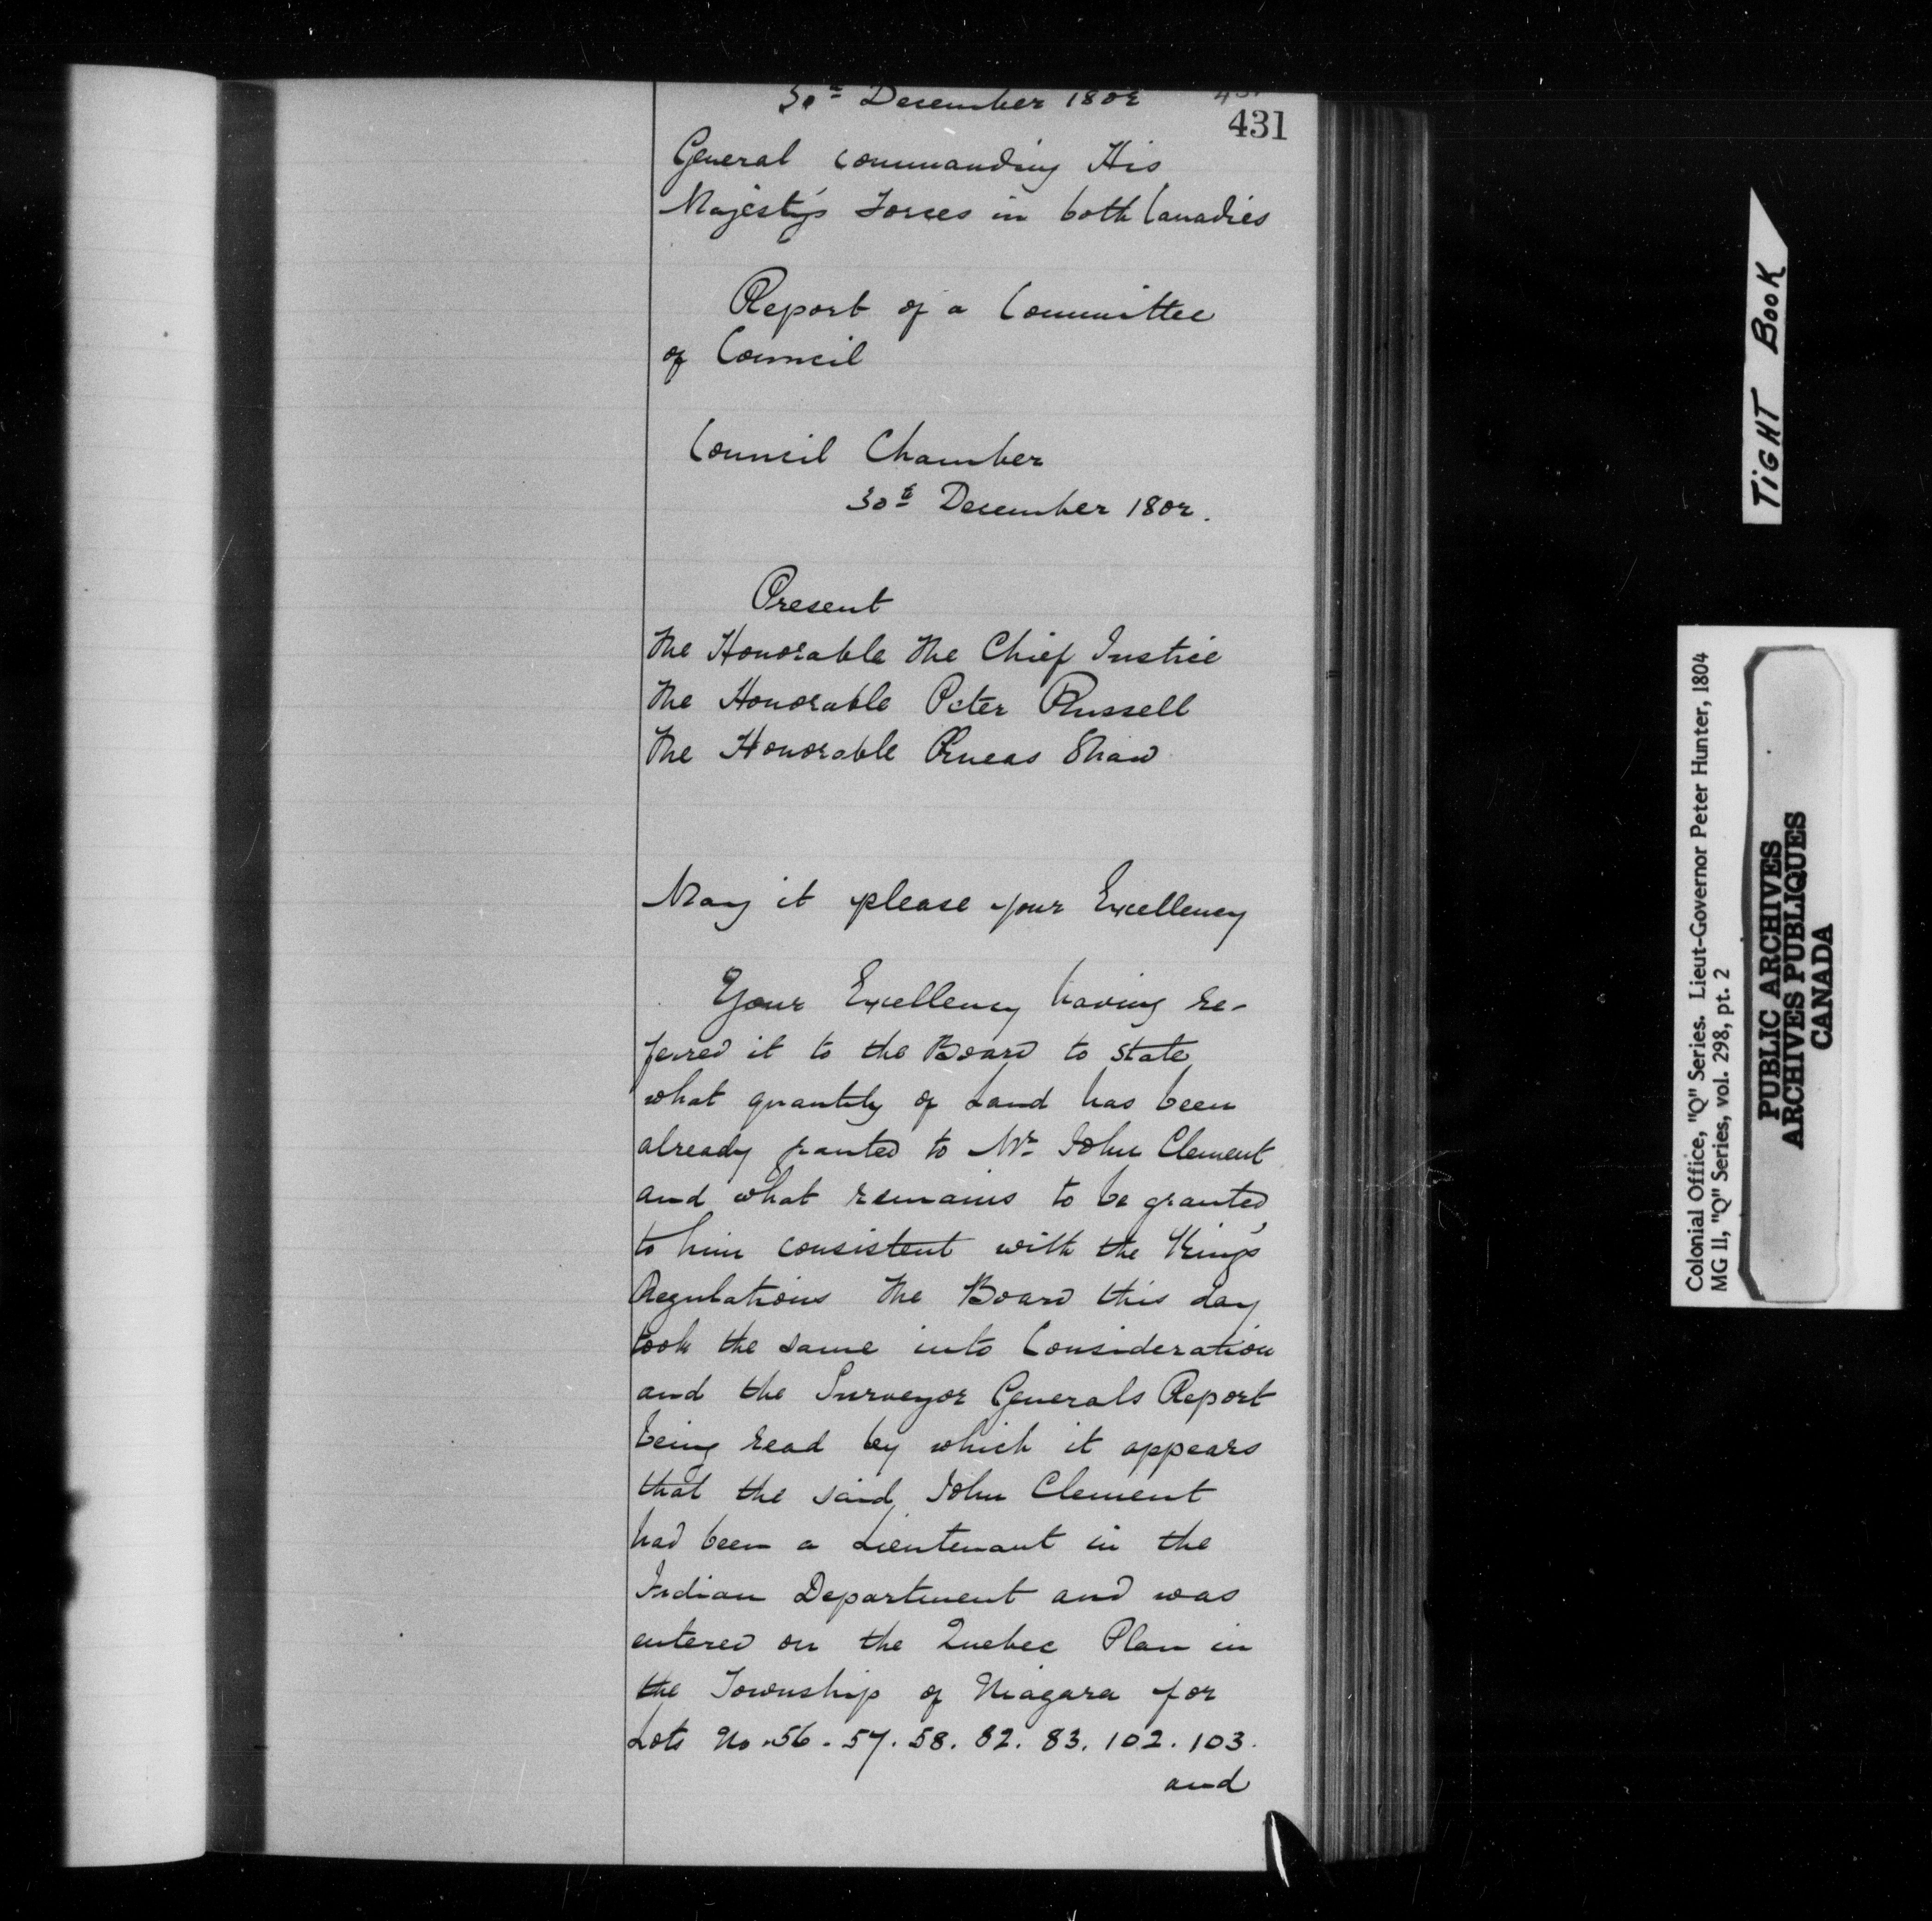 30th December 1802
431
General Commanding His
Majesty's Forces in both Canadies
Report of a Committee
of Council
Council Chamber
30th December 1802.
Present
The Honorable The Chief Justice
The Honorable Peter Russell
The Honorable Æneas Shaw
May it please your Excellency
Your Excellency having re-
ferred it to the Board to state
what quantity of Land has been
already granted to Mr John Clement
and what remains to be granted
to him consistent with the King's
Regulations The Board this day
took the same into Consideration
and the Surveyor Generals Report
being read by which it appears
that the said John Clement
had been a Lieutenant in the
Indian Department and was
entered on the Quebec Plan in
the Township of Niagara for
Lots No. 56. 57. 58. 82. 83. 102. 103.
and
TIGHT BOOK
Colonial Office, "Q" Series. Lieut-Governor Peter Hunter, 1804
MG 11, "Q" Series, vol. 298, pt. 2
PUBLIC ARCHIVES
ARCHIVES PUBLIQUES
CANADA